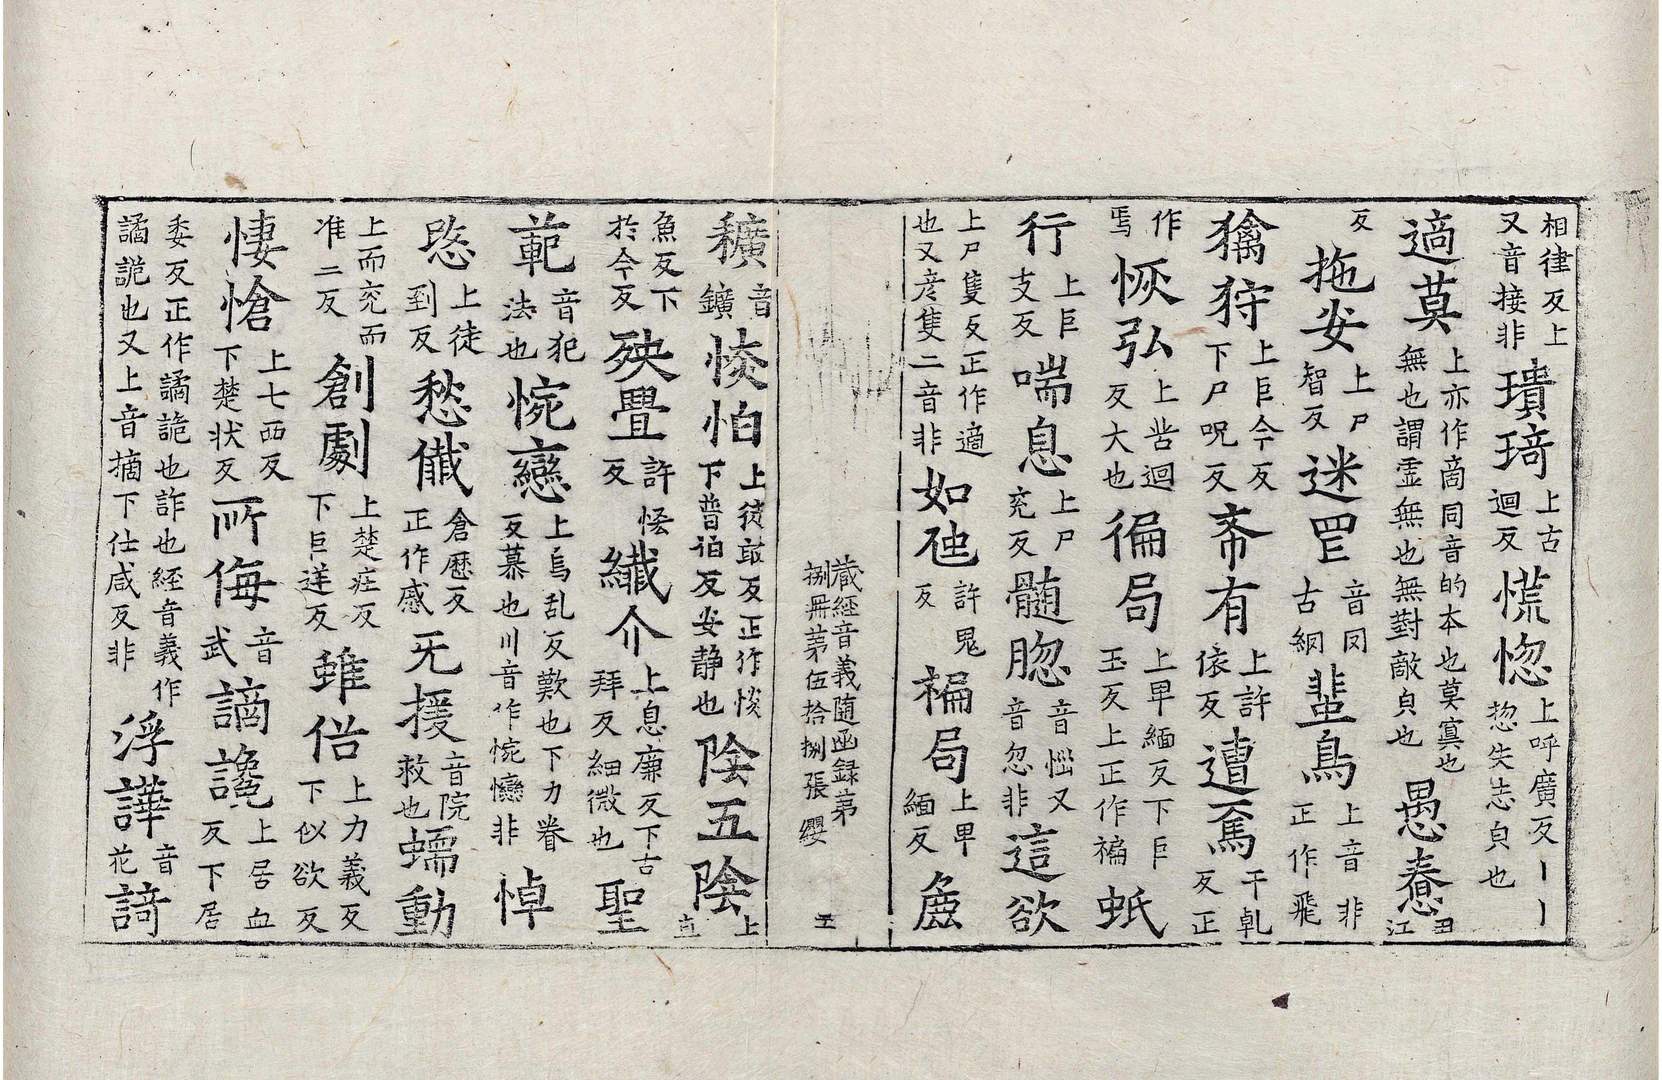 相律反上又音接非瓄琦上古迴反慌惚上呼廣反丨丨惚失志皃也
適莫上亦作啇同音的本也莫寞也無也謂虛無也無對敵皃也愚惷丑江
反拖安上尸智反迷罡音罔古網蜚鳥上音非正作飛
獦狩上巨今反下尸呪反希有上許依反遭奪干乹反正
作焉恢弘上苦迴反大也徧局上卑緬反下巨玉反上正作褊蚔
行上巨支反喘息上尸兖反髄𦛁音惱又音忽非這欲
上尸隻反正作適也又彦隻二音非如虵許鬼反褊局上卑緬反麁
藏經音義隨函録第
捌冊第伍拾捌張 纓
穬音鑛惔怕上徒敢反正作惔下普伯反安静也陰五陰上
魚反下於今反殃舋許𢙣反纖介上息廉反下古拜反細微也聖
範音犯法也惋戀上烏乱反歎也下力眷反慕也川音作惋戀非悼
愍上徒到反愁慽倉歷反正作慼无援音院救也蠕動
上而兖而准二反創劇上楚庄反下巨逆反雖俗上力義反下似欲反
悽愴上七西反下楚状反所侮音武謫詭上居血反下居
委反正作譎詭也詐也經音義作譎詭也又上音摘下仕咸反非浮譁音花䛴